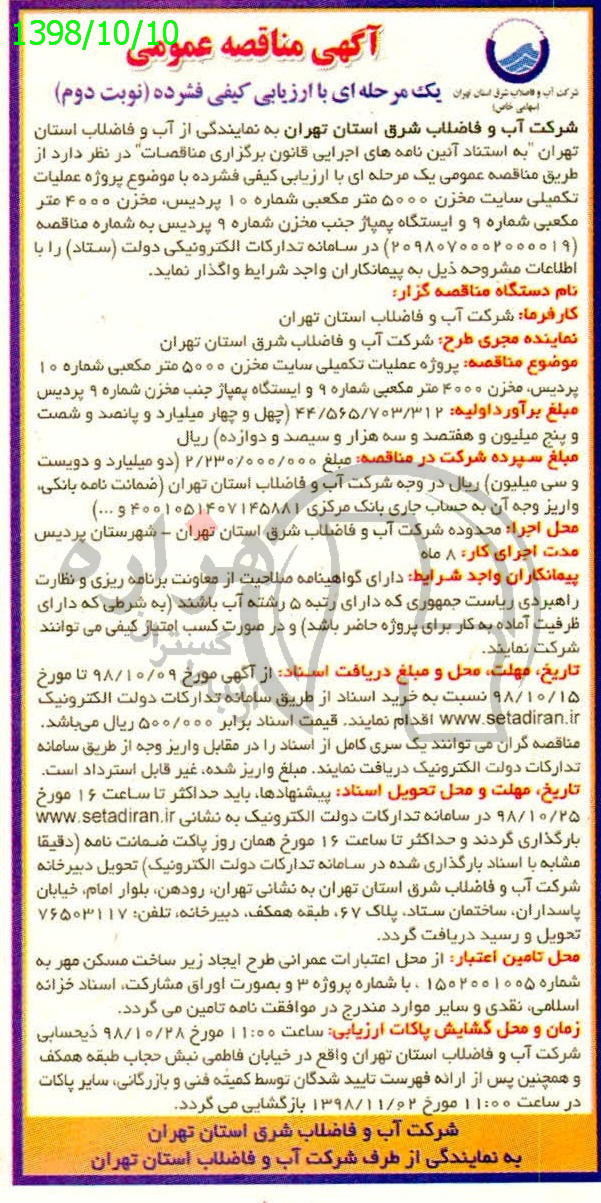 1398/10/10
آگهی مناقصه عمومی
شرکت آب و فاضلاب شرق استان تهران
(سهامی خاص)
یک مرحله ای با ارزیابی کیفی فشرده (نوبت دوم)
شرکت آب و فاضلاب شرق استان تهران به نمایندگی از آب و فاضلاب استان
تهران "به استناد آئین نامه های اجرایی قانون برگزاری مناقصات" در نظر دارد از
طریق مناقصه عمومی یک مرحله ای با ارزیابی کیفی فشرده با موضوع پروژه عملیات
تکمیلی سایت مخزن ۵۰۰۰ متر مکعبی شماره ۱۰ پردیس، مخزن ۴۰۰۰ متر
مکعبی شماره ۹ و ایستگاه پمپاژ جنب مخزن شماره ۹ پردیس به شماره مناقصه
(۲۰۹۸۰۷۰۰۰۲۰۰۰۰۱۹) در سامانه تدارکات الکترونیکی دولت (ستاد) را با
اطلاعات مشروحه ذیل به پیمانکاران واجد شرایط واگذار نماید.
نام دستگاه مناقصه گزار:
کارفرما: شرکت آب و فاضلاب استان تهران
نماینده مجری طرح: شرکت آب و فاضلاب شرق استان تهران
موضوع مناقصه: پروژه عملیات تکمیلی سایت مخزن ۵۰۰۰ متر مکعبی شماره ۱۰
پردیس، مخزن ۴۰۰۰ متر مکعبی شماره ۹ و ایستگاه پمپاژ جنب مخزن شماره ۹ پردیس
مبلغ برآورد اولیه: ۴۴/۵۶۵/۷۰۳/۳۱۲ (چهل و چهار میلیارد و پانصد و شصت
و پنج میلیون و هفتصد و سه هزار و سیصد و دوازده) ریال
مبلغ سپرده شرکت در مناقصه: مبلغ ۲/۲۳۰/۰۰۰/۰۰۰ (دو میلیارد و دویست
و سی میلیون) ریال در وجه شرکت آب و فاضلاب استان تهران (ضمانت نامه بانکی،
واریز وجه آن به حساب جاری بانک مرکزی ۴۰۰۱۰۵۱۴۰۷۱۴۵۸۸۱ و ...)
محل اجرا: محدوده شرکت آب و فاضلاب شرق استان تهران – شهرستان پردیس
مدت اجرای کار: ۸ ماه
پیمانکاران واجد شرایط: دارای گواهینامه صلاحیت از معاونت برنامه ریزی و نظارت
راهبردی ریاست جمهوری که دارای رتبه ۵ رشته آب باشند (به شرطی که دارای
ظرفیت آماده به کار برای پروژه حاضر باشد) و در صورت کسب امتیاز کیفی می توانند
شرکت نمایند.
تاریخ، مهلت، محل و مبلغ دریافت اسناد: از آگهی مورخ ۹۸/۱۰/۰۹ تا مورخ
۹۸/۱۰/۱۵ نسبت به خرید اسناد از طریق سامانه تدارکات دولت الکترونیک
www.setadiran.ir اقدام نمایند. قیمت اسناد برابر ۵۰۰/۰۰۰ ریال می‌باشد.
مناقصه گران می توانند یک سری کامل از اسناد را در مقابل واریز وجه از طریق سامانه
تدارکات دولت الکترونیک دریافت نمایند. مبلغ واریز شده، غیر قابل استرداد است.
تاریخ، مهلت و محل تحویل اسناد: پیشنهادها، باید حداکثر تا ساعت ۱۶ مورخ
۹۸/۱۰/۲۵ در سامانه تدارکات دولت الکترونیک به نشانی www.setadiran.ir
بارگذاری گردند و حداکثر تا ساعت ۱۶ مورخ همان روز پاکت ضمانت نامه (دقیقا
مشابه با اسناد بارگذاری شده در سامانه تدارکات دولت الکترونیک) تحویل دبیرخانه
شرکت آب و فاضلاب شرق استان تهران به نشانی تهران، رودهن، بلوار امام، خیابان
پاسداران، ساختمان ستاد، پلاک ۶۷، طبقه همکف، دبیرخانه، تلفن: ۷۶۵۰۳۱۱۷
تحویل و رسید دریافت گردد.
محل تامین اعتبار: از محل اعتبارات عمرانی طرح ایجاد زیر ساخت مسکن مهر به
شماره ۱۵۰۲۰۰۱۰۰۵ ، با شماره پروژه ۳ و بصورت اوراق مشارکت، اسناد خزانه
اسلامی، نقدی و سایر موارد مندرج در موافقت نامه تامین می گردد.
زمان و محل گشایش پاکات ارزیابی: ساعت ۱۱:۰۰ مورخ ۹۸/۱۰/۲۸ ذیحسابی
شرکت آب و فاضلاب استان تهران واقع در خیابان فاطمی نبش حجاب طبقه همکف
و همچنین پس از ارائه فهرست تایید شدگان توسط کمیته فنی و بازرگانی، سایر پاکات
در ساعت ۱۱:۰۰ مورخ ۱۳۹۸/۱۱/۰۲ بازگشایی می گردد.
شرکت آب و فاضلاب شرق استان تهران
به نمایندگی از طرف شرکت آب و فاضلاب استان تهران